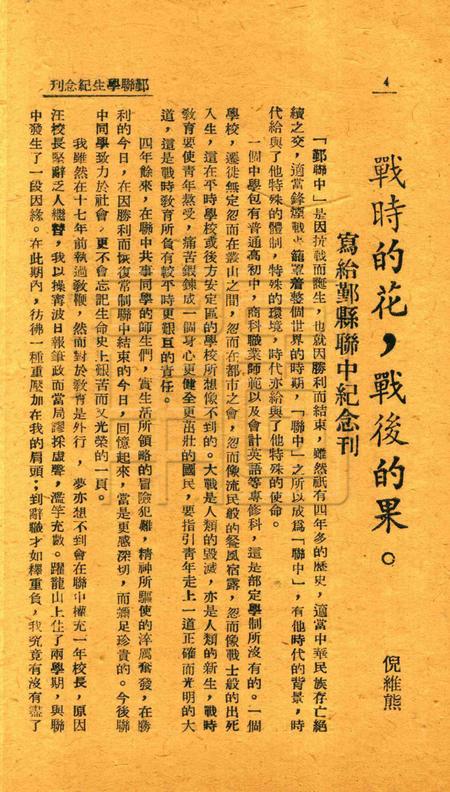 鄞聯學生紀念刊
4
戰時的花，戰後的果。
寫給鄞縣聯中紀念刊
倪維熊
「鄞聯中」是因抗戰而誕生，也就因勝利而結束，雖然祇有四年多的歷史，適當中華民族存亡絕
續之交，適當鋒煙戰火籠罩着整個世界的時期，「聯中」之所以成為「聯中」，有他時代的背景，時
代給與了他特殊的體制，特殊的環境，時代亦給與了他特殊的使命。
一個中學包有普通高初中，商科職業師範以及會計英語等專修科，這是部定學制所沒有的。一個
學校，遷徙無定忽而在叢山之間，忽而在都市之會，忽而像流民般的餐風宿露，忽而像戰士般的出死
入生，這在平時學校或後方安定區的學校所想像不到的。大戰是人類的毀滅，亦是人類的新生，戰時
教育要使青年熬受，痛苦鍛鍊成一個身心更健全更茁壯的國民，要指引青年走上一道正確而光明的大
道，這是戰時教育所負有較平時更艱巨的責任。
四年餘來，在聯中共事同學的師生們，實生活所領略的冒險犯難，精神所驅使的淬厲奮發，在勝
利的今日，在因勝利而恢復常制聯中結束的今日，回憶起來，當是更感深切，而彌足珍貴的。今後聯
中同學致力於社會，更不會忘記生命史上艱苦而又光榮的一頁。
我雖然在十七年前執過教鞭，然而對於教育是外行，夢亦想不到會在聯中權充一年校長，原因
汪校長堅辭乏人繼替，我以操寗波日報筆政而當局謬採虛聲，濫竽充數。躍龍山上住了兩學期，與聯
中發生了一段因緣。在此期內，彷彿一種重壓加在我的肩頭；到辭職才如釋重負，我究竟有沒有盡了